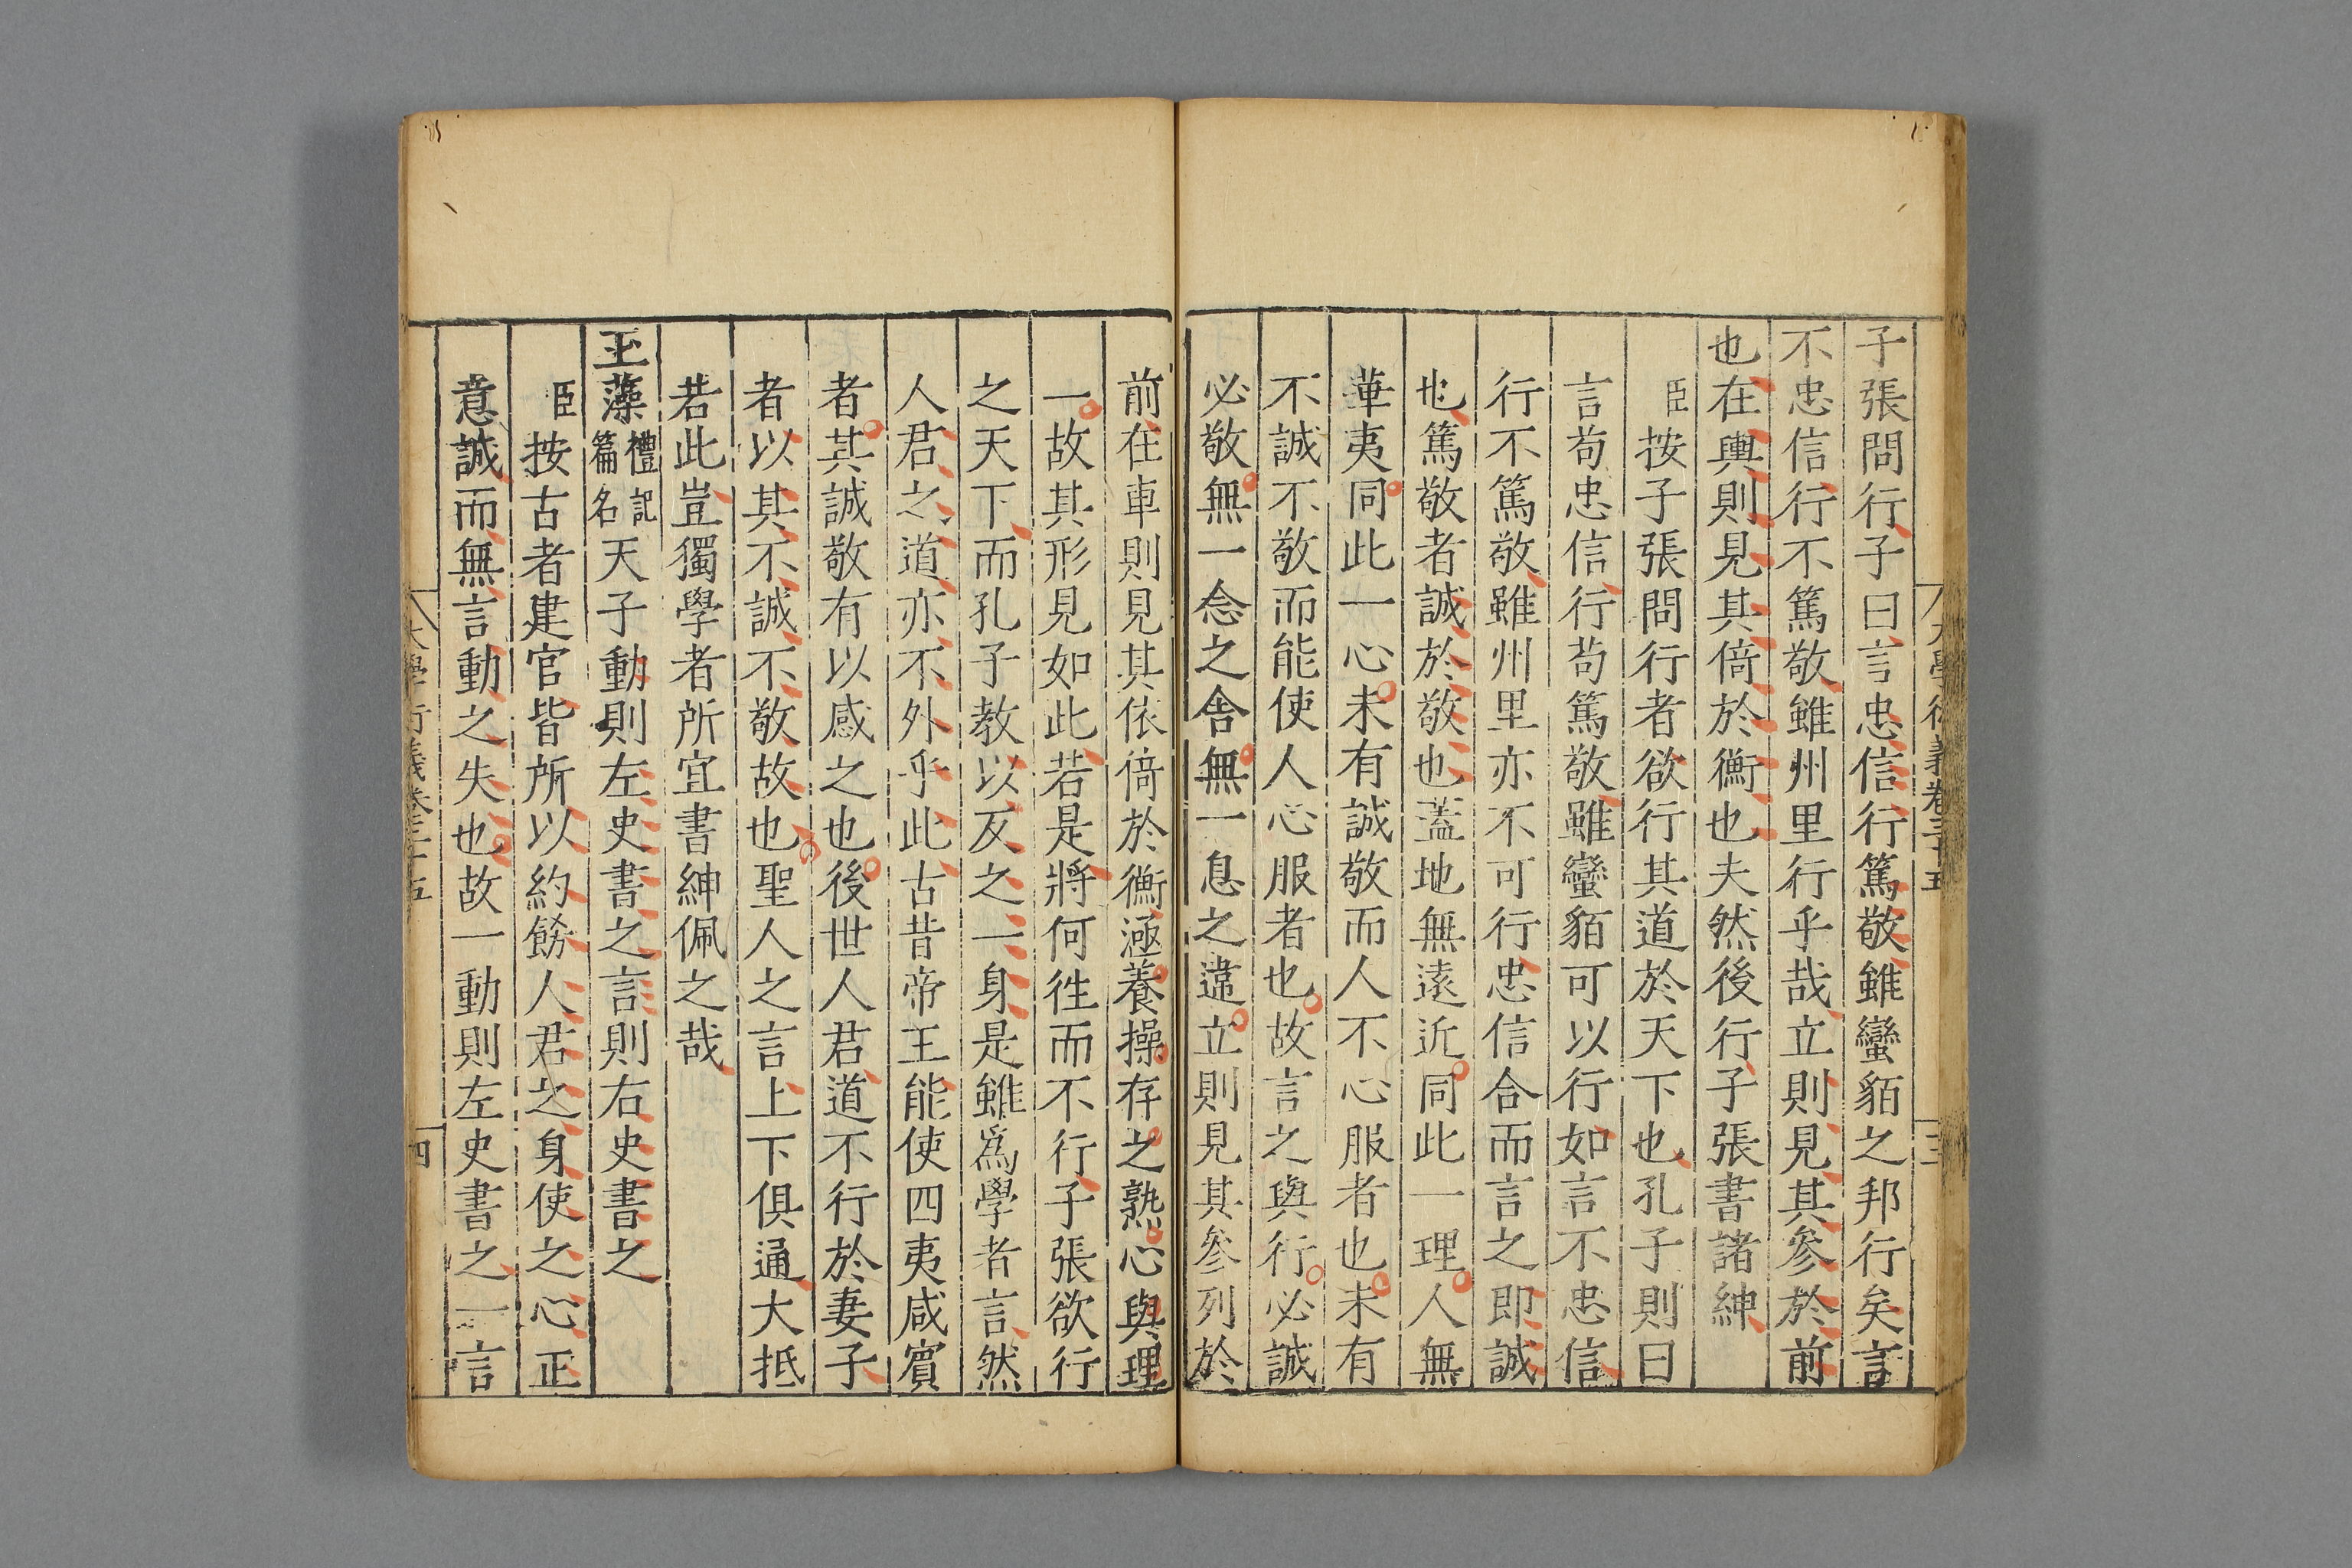 大學衍義卷三十五
三
子張問行子曰言忠信行篤敬雖蠻貊之邦行矣言
不忠信行不篤敬雖州里行乎哉立則見其參於前
也在輿則見其倚於衡也夫然後行子張書諸紳
臣按子張問行者欲行其道於天下也孔子則曰
言苟忠信行苟篤敬雖蠻貊可以行如言不忠信
行不篤敬雖州里亦不可行忠信合而言之即誠
也篤敬者誠於敬也蓋地無遠近同此一理人無
華夷同此一心未有誠敬而人不心服者也未有
不誠不敬而能使人心服者也故言之與行必誠
必敬無一念之舍無一息之違立則見其參列於
前在車則見其依倚於衡涵養操存之熟心與理
一故其形見如此若是將何徃而不行子張欲行
之天下而孔子教以反之一身是雖爲學者言然
人君之道亦不外乎此古昔帝王能使四夷咸賓
者其誠敬有以感之也後世人君道不行於妻子
者以其不誠不敬故也聖人之言上下俱通大抵
若此豈獨學者所宜書紳佩之哉
玉藻禮記篇名天子動則左史書之言則右史書之
臣按古者建官皆所以約飭人君之身使之心正
意誠而無言動之失也故一動則左史書之一言
大學衍義卷三十五
四